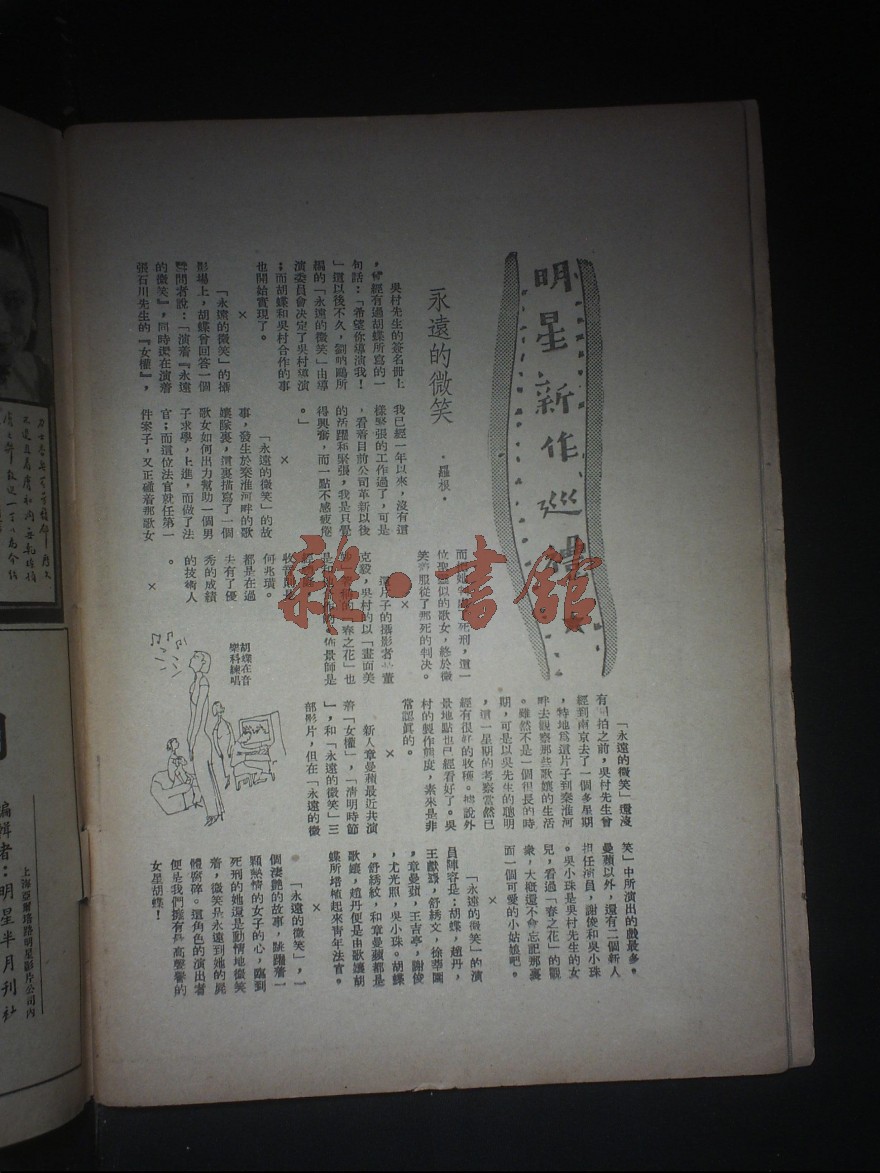 明星新作巡禮
永遠的微笑
·羅根·
吳村先生的簽名冊上
，曾經有過胡蝶所寫的一
句話：「希望你導演我！
」這以後不久，劉吶鷗所
編的「永遠的微笑」由導
演委員會決定了吳村導演
；而胡蝶和吳村合作的事
也開始實現了。
×
「永遠的微笑」的攝
影場上，胡蝶曾回答一個
訪問者說：「演着『永遠
的微笑』，同時還在演着
張石川先生的『女權』，
我已經一年以來，沒有這
樣緊張的工作過了，可是
，看着目前公司革新以後
的活躍和緊張，我是只覺
得興奮，而一點不感疲倦
。」
×
「永遠的微笑」的故
事，發生於秦淮河畔的歌
孃隊裏，這裏描寫了一個
歌女如何出力幫助一個男
子求學，上進，而做了法
官；而這位法官就任第一
件案子，又正碰着那歌女
位聖潔似的歌女，終於微
笑着服從了那死的判決。
×
這片子的攝影者是董
克毅，吳村的以「畫面美
春之花」也
何兆璜。
都是在過
去有了優
秀的成績
的技術人
。
×
胡蝶在音
樂科練唱
「永遠的微笑」還沒
有開拍之前，吳村先生曾
經到南京去了一個多星期
，特地爲這片子到秦淮河
畔去觀察那些歌孃的生活
。雖然不是一個很長的時
期，可是以吳先生的聰明
，這一星期的考察當然已
經有很好的收穫。據說外
景地點也已經看好了。吳
村的製作態度，素來是非
常認眞的。
新人章曼蘋最近共演
着「女權」，「清明時節
」，和「永遠的微笑」三
部影片，但在「永遠的微
笑」中所演出的戲最多。
曼蘋以外，還有二個新人
担任演員，謝俊和吳小珠
。吳小珠是吳村先生的女
兒，看過「春之花」的觀
衆，大槪還不會忘記那裏
面一個可愛的小姑娘吧。
×
「永遠的微笑」的演
員陣容是：胡蝶，趙丹，
王獻齋，舒綉文，徐莘園
，章曼蘋，王吉亭，謝俊
，尤光照，吳小珠。胡蝶
，舒綉紋，和章曼蘋都是
歌孃，趙丹便是由歌孃胡
蝶所培植起來青年法官。
×
「永遠的微笑」，一
個淒艷的故事，跳躍着一
顆熱情的女子的心，臨到
死刑的她還是動情地微笑
着，微笑是永遠到她的屍
體腐碎。這角色的演出者
便是我們擁有最高聲譽的
女星胡蝶！
編輯者：明星半月刊社
上海亞爾培路明星影片公司內
雜·書館